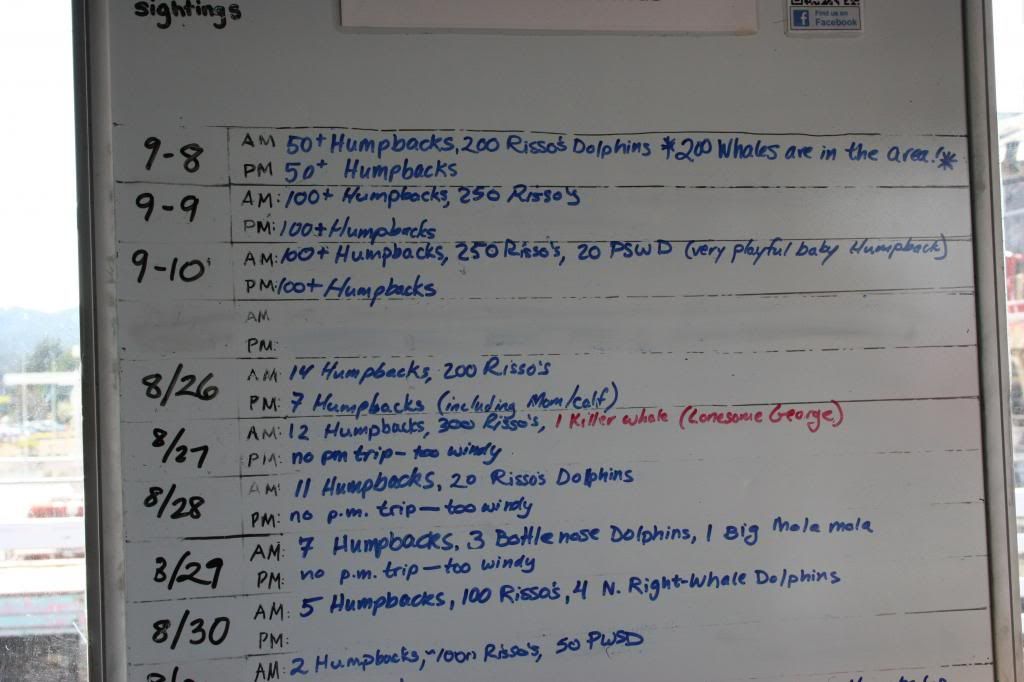 sightings
Find us on
Facebook
9-8 AM 50+ Humpbacks, 200 Risso's Dolphins *200 Whales are in the area!*
PM 50+ Humpbacks
9-9 AM: 100+ Humpbacks, 250 Risso's
PM: 100+ Humpbacks
9-10 AM: 100+ Humpbacks, 250 Risso's, 20 PSWD (very playful baby Humpback)
PM: 100+ Humpbacks
AM
PM:
8/26 AM: 14 Humpbacks, 200 Risso's
PM: 7 Humpbacks (including Mom/calf)
8/27 AM: 12 Humpbacks, 300 Risso's, 1 Killer whale (Lonesome George)
PM: no pm trip - too windy
8/28 AM: 11 Humpbacks, 20 Risso's Dolphins
PM: no p.m. trip - too windy
8/29 AM: 7 Humpbacks, 3 Bottlenose Dolphins, 1 Big Mola mola
PM: no p.m. trip - too windy
8/30 AM: 5 Humpbacks, 100 Risso's, 4 N. Right-Whale Dolphins
PM:
AM: 2 Humpbacks, ~100 Risso's, 50 PWSD